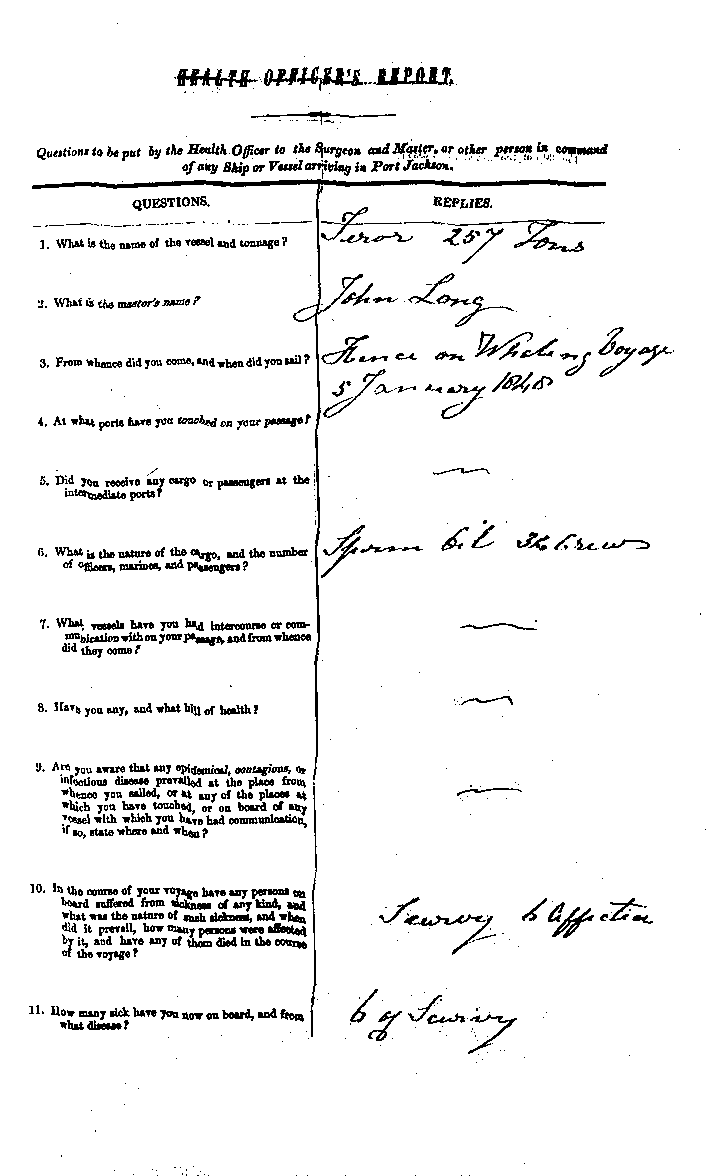 HEALTH OFFICER'S REPORT.
Questions to be put by the Health Officer to the Surgeon and Master, or other person in command
of any Ship or Vessel arriving in Port Jackson.
QUESTIONS.
REPLIES.
1. What is the name of the vessel and tonnage?
257 Tons
2. What is the master's name?
John Long
3. From whence did you come, and when did you sail?
Hence on Whaling Voyage
5 January 1848
4. At what ports have you touched on your passage?
5. Did you receive any cargo or passengers at the
intermediate ports?
6. What is the nature of the cargo, and the number
of officers, marines, and passengers?
Sperm Oil
7. What vessels have you had intercourse or com-
munication with on your passage, and from whence
did they come?
8. Have you any, and what bill of health?
9. Are you aware that any epidemical, contagious, or
infectious disease prevailed at the place from
whence you sailed, or at any of the places at
which you have touched, or on board of any
vessel with which you have had communication,
if so, state where and when?
10. In the course of your voyage have any persons on
board suffered from sickness of any kind, and
what was the nature of such sickness, and when
did it prevail, how many persons were affected
by it, and have any of them died in the course
of the voyage?
Scurvy 6
11. How many sick have you now on board, and from
what disease?
6 of Scurvy